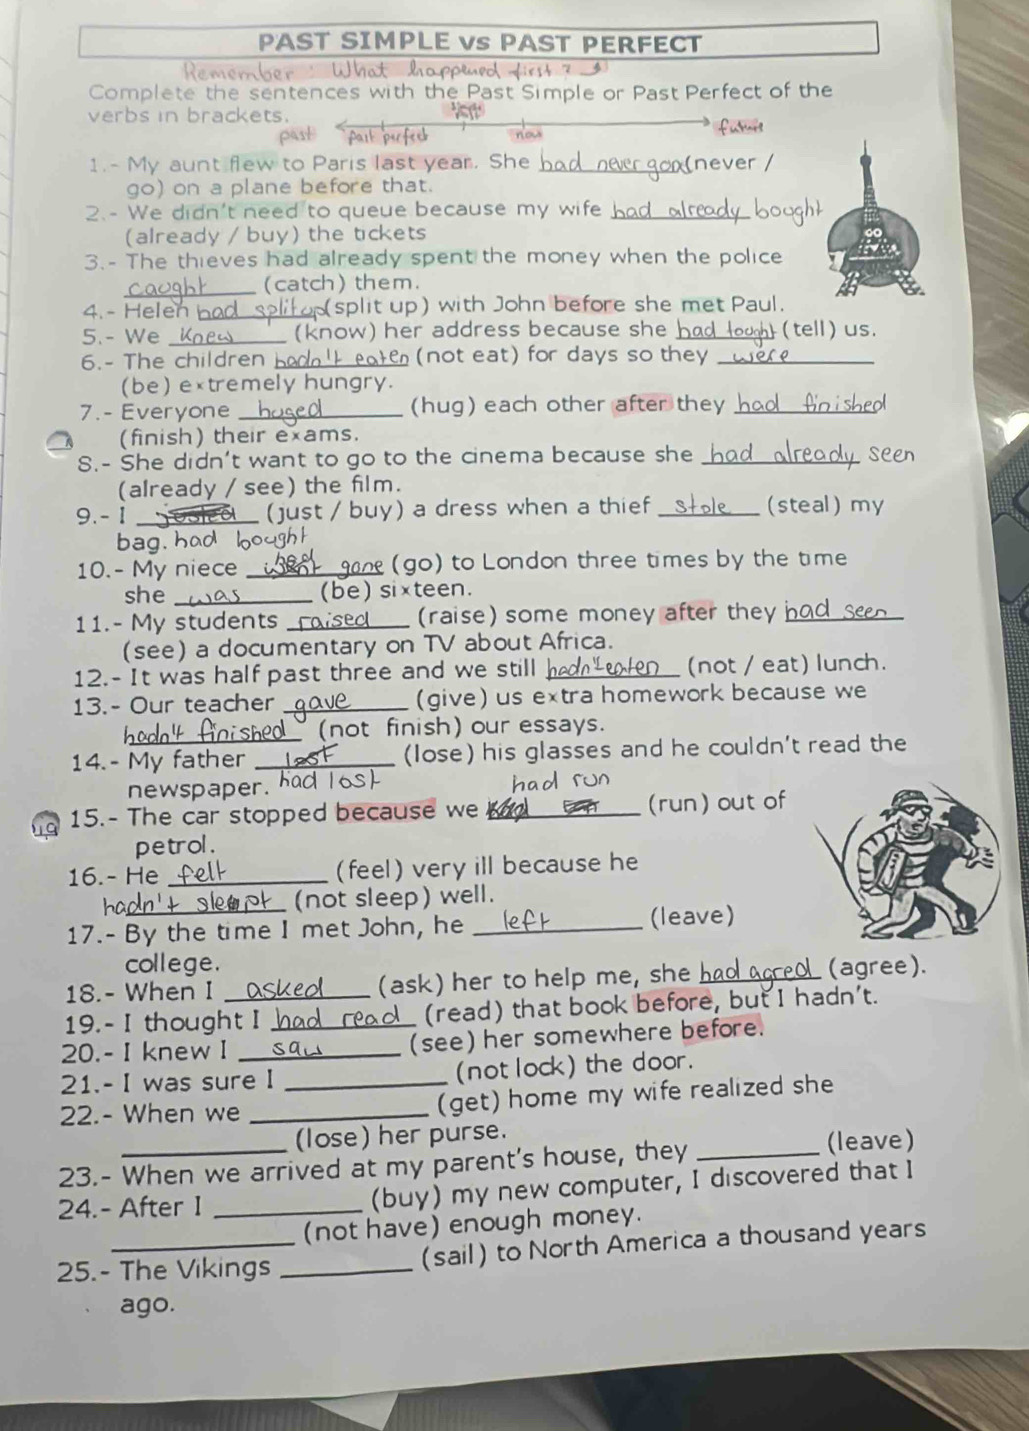 PAST SIMPLE vs PAST PERFECT
Remember : What happened first ?
Complete the sentences with the Past Simple or Past Perfect of the
verbs in brackets.
past past perfect now future
1.- My aunt flew to Paris last year. She had never gone (never /
go) on a plane before that.
2.- We didn't need to queue because my wife had already bought
(already / buy) the tickets
3.- The thieves had already spent the money when the police
caught (catch) them.
4.- Helen had split up (split up) with John before she met Paul.
5.- We knew (know) her address because she had (tell) us.
6.- The children hadn't eaten (not eat) for days so they were
(be) extremely hungry.
7.- Everyone huged (hug) each other after they had finished
(finish) their exams.
8.- She didn't want to go to the cinema because she had already seen
(already / see) the film.
9.- I (just / buy) a dress when a thief stole (steal) my
bag. had bought
10.- My niece gone (go) to London three times by the time
she was (be) sixteen.
11.- My students raised (raise) some money after they had seen
(see) a documentary on TV about Africa.
12.- It was half past three and we still hadn't eaten (not / eat) lunch.
13.- Our teacher gave (give) us extra homework because we
hadn't finished (not finish) our essays.
14.- My father lost (lose) his glasses and he couldn't read the
newspaper. had lost had run
15.- The car stopped because we (run) out of
petrol.
16.- He felt (feel) very ill because he
hadn't (not sleep) well.
17.- By the time I met John, he left (leave)
college.
18.- When I asked (ask) her to help me, she had agred (agree).
19.- I thought I had read (read) that book before, but I hadn't.
20.- I knew I saw (see) her somewhere before.
21.- I was sure I (not lock) the door.
22.- When we (get) home my wife realized she
(lose) her purse.
23.- When we arrived at my parent's house, they (leave)
24.- After I (buy) my new computer, I discovered that I
(not have) enough money.
25.- The Vikings (sail) to North America a thousand years
ago.